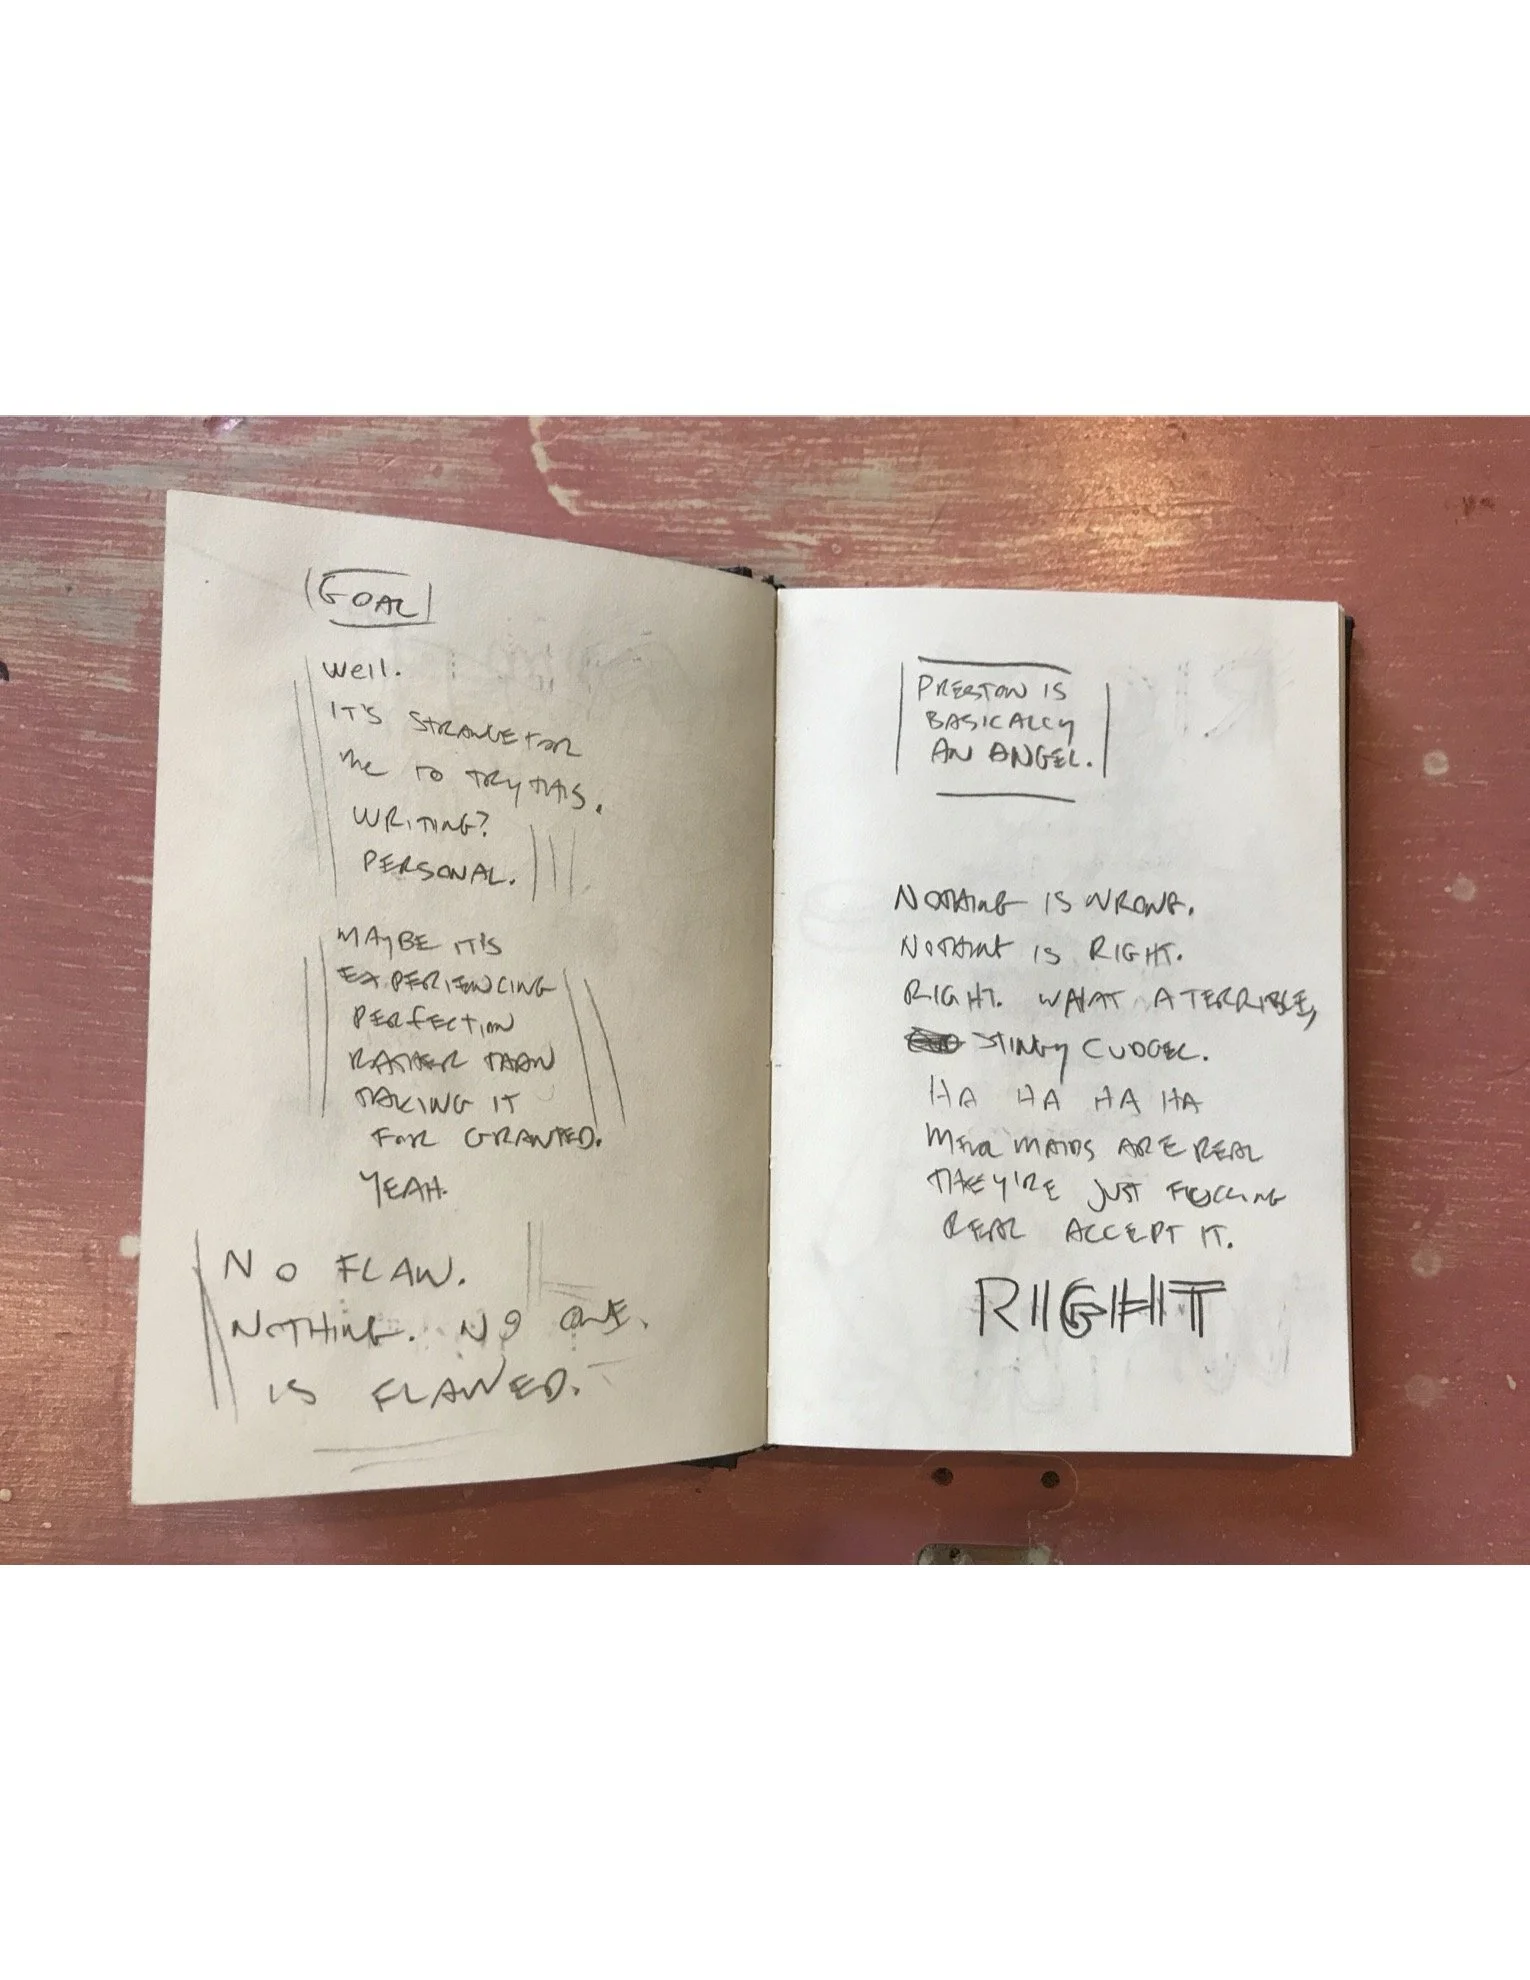 GOAL
Well.
IT'S STRANGE FOR
me TO TRY THIS.
WRITING?
PERSONAL.
MAYBE IT'S
EXPERIENCING
PERFECTION
RATHER THAN
TAKING IT
FOR GRANTED.
YEAH.
NO FLAW.
NOTHING. NO ONE.
IS FLAWED.
PRESTON IS
BASICALLY
AN ANGEL.
NOTHING IS WRONG.
NOTHING IS RIGHT.
RIGHT. WHAT A TERRIBLE,
STINGY CUDGEL.
HA HA HA HA
MERMAIDS ARE REAL
THEY'RE JUST FUCKING
REAL ACCEPT IT.
RIGHT